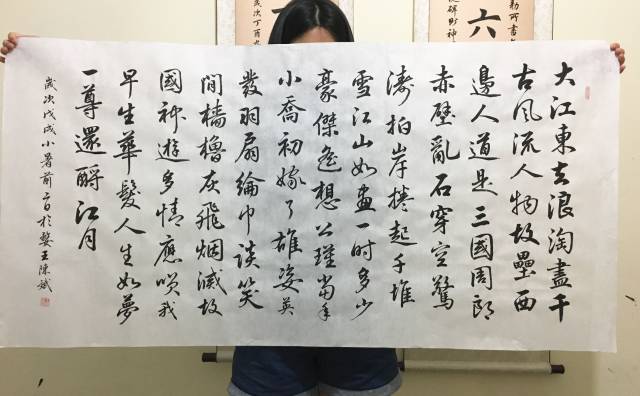 大江東去浪淘盡千
古風流人物故壘西
邊人道是三國周郎
赤壁亂石穿空驚
濤拍岸捲起千堆
雪江山如畫一時多少
豪傑遙想公瑾當年
小喬初嫁了雄姿英
發羽扇綸巾談笑
間檣櫓灰飛烟滅故
國神遊多情應咲我
早生華髮人生如夢
一尊還酹江月
歲次戊戌小暑前日於婺王陳斌
六
歲次丁酉九